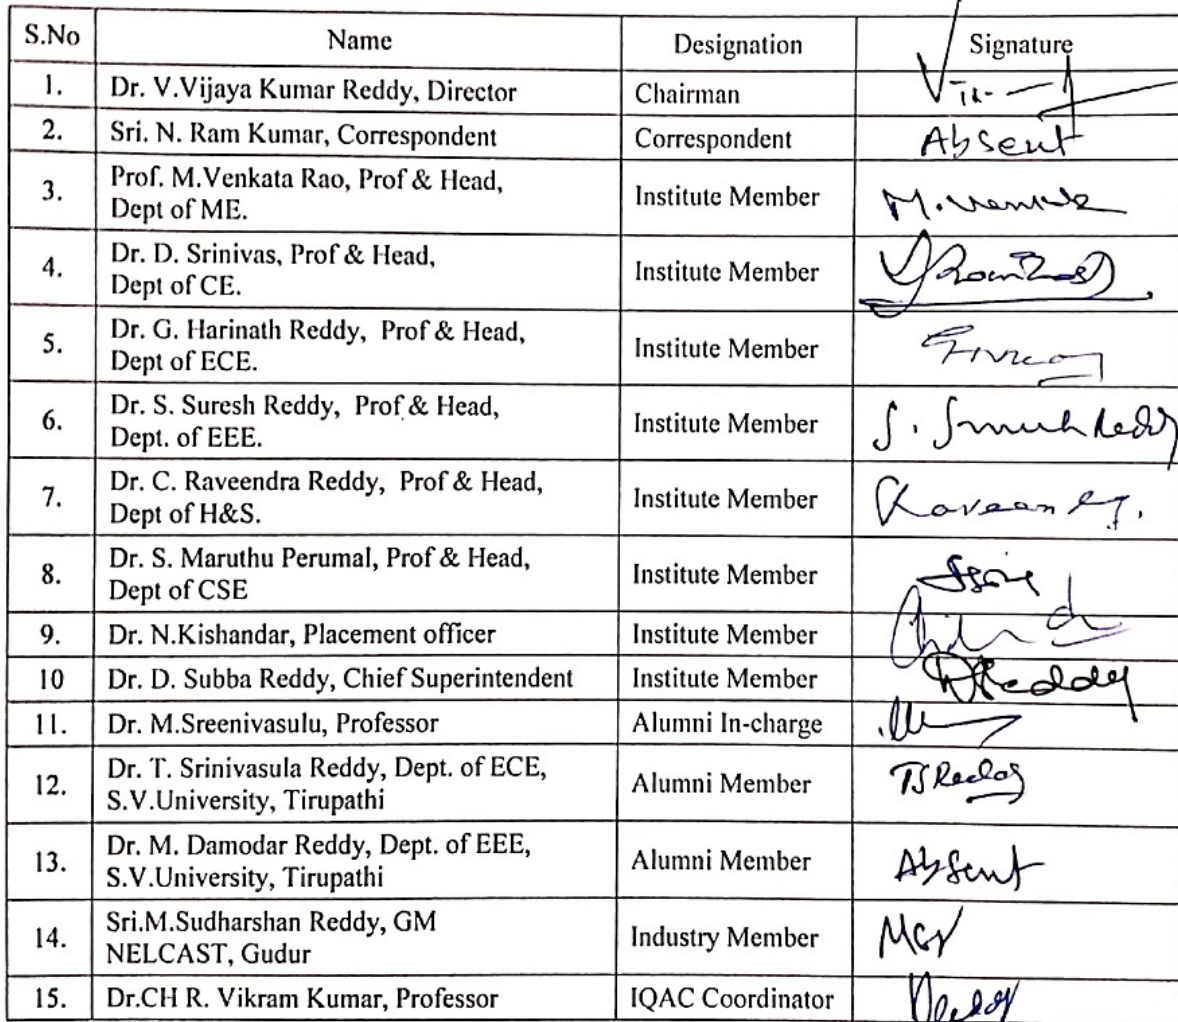 S.No Name Designation Signature
1. Dr. V.Vijaya Kumar Reddy, Director Chairman
2. Sri. N. Ram Kumar, Correspondent Correspondent Absent
3. Prof. M.Venkata Rao, Prof & Head,
Dept of ME. Institute Member
4. Dr. D. Srinivas, Prof & Head,
Dept of CE. Institute Member
5. Dr. G. Harinath Reddy, Prof & Head,
Dept of ECE. Institute Member
6. Dr. S. Suresh Reddy, Prof & Head,
Dept. of EEE. Institute Member
7. Dr. C. Raveendra Reddy, Prof & Head,
Dept of H&S. Institute Member
8. Dr. S. Maruthu Perumal, Prof & Head,
Dept of CSE Institute Member
9. Dr. N.Kishandar, Placement officer Institute Member
10 Dr. D. Subba Reddy, Chief Superintendent Institute Member
11. Dr. M.Sreenivasulu, Professor Alumni In-charge
12. Dr. T. Srinivasula Reddy, Dept. of ECE,
S.V.University, Tirupathi Alumni Member
13. Dr. M. Damodar Reddy, Dept. of EEE,
S.V.University, Tirupathi Alumni Member Absent
14. Sri.M.Sudharshan Reddy, GM
NELCAST, Gudur Industry Member
15. Dr.CH R. Vikram Kumar, Professor IQAC Coordinator